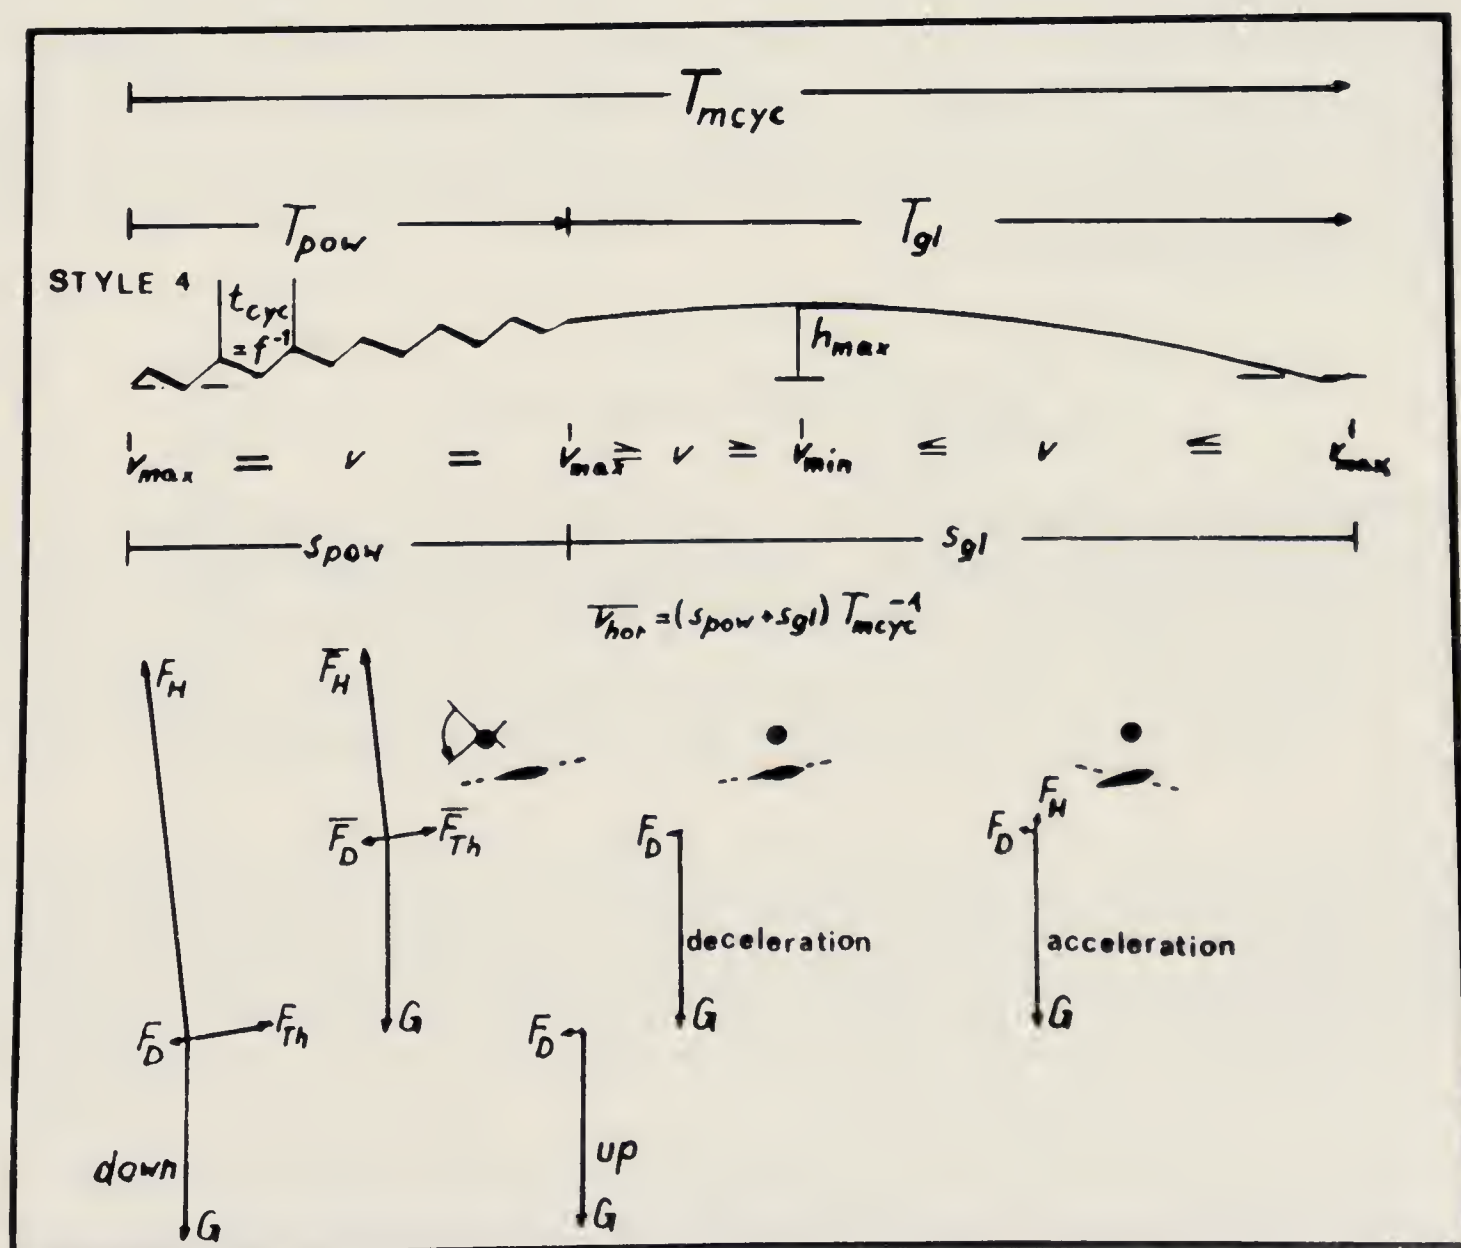 T_mcyc
T_pow T_gl
STYLE 4
t_cyc
= f⁻¹
h_max
v_max = v = v_max ≥ v ≥ v_min ≤ v ≤ v_max
s_pow s_gl
v̅_hor = (s_pow + s_gl) T_mcyc⁻¹
F_H F̅_H
F̅_D F̅_Th F_D F_D F_H
deceleration acceleration
G G G
F_D F_Th F_D
down up
G G